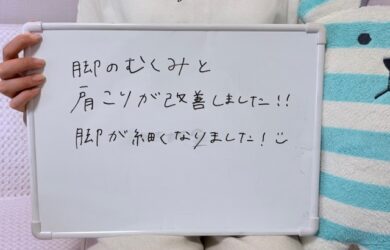 脚のむくみと
肩こりが改善しました!!
脚が細くなりました!☺